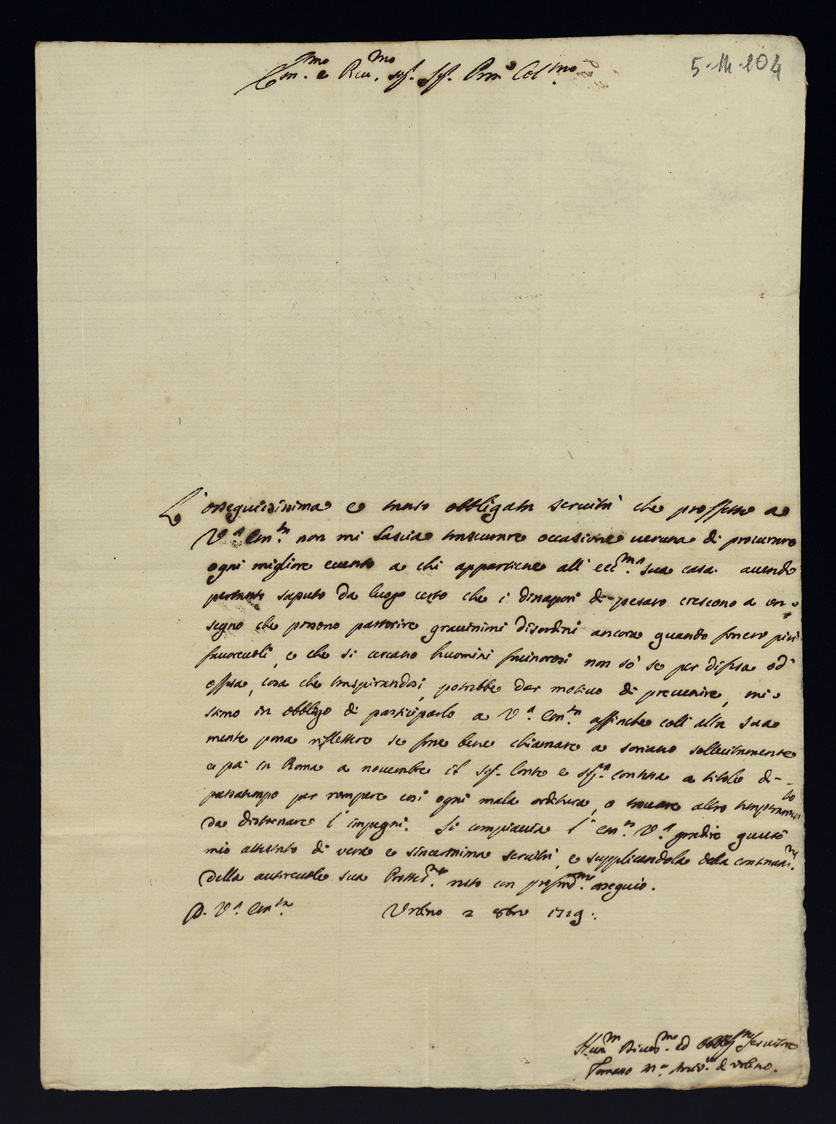 5-III-104
Em.mo e Rev.mo Sig.r Sig.r Pron Col.mo
L'ossequiosissima e tanto obbligata servitù che professo a
V.a Em.za non mi lascia trascurare occasione veruna di procurare
ogni migliore evento a chi appartiene all'ecc.ma sua casa. avendo
pertanto saputo da luogo certo che i dissapori di Pesaro crescono a un
segno che possono partorire gravissimi disordini ancora quando fossero più
favorevoli, e che si cercano huomini facinorosi non sò se per difesa od
offesa, cosa che traspirandosi, potrebbe dar motivo di prevenire, mi
stimo in obbligo di participarlo a V.a Em.za affinche coll'alta sua
mente possa riflettere se fosse bene chiamare a Soriano sollecitamente
e poi in Roma a novembre il Sig.r Conte e Sig.ra Contessa a titolo di
passatempo per rompere così ogni mala orditura, o trovare altro temperamento
da distornare l'impegni. Si compiaccia l'Em.za V.a gradire questo
mio attestato di vera e sincerissima servitù, e supplicandola della continuaz.ne
della autorevole sua Protez.ne resto con profond.mo ossequio.
D. V.a Em.za Urbino 2 8bre 1719.
Hum.mo Divot.mo ed Obblig.mo Servitore
Tomaso M.a Arciv.o d'Urbino.